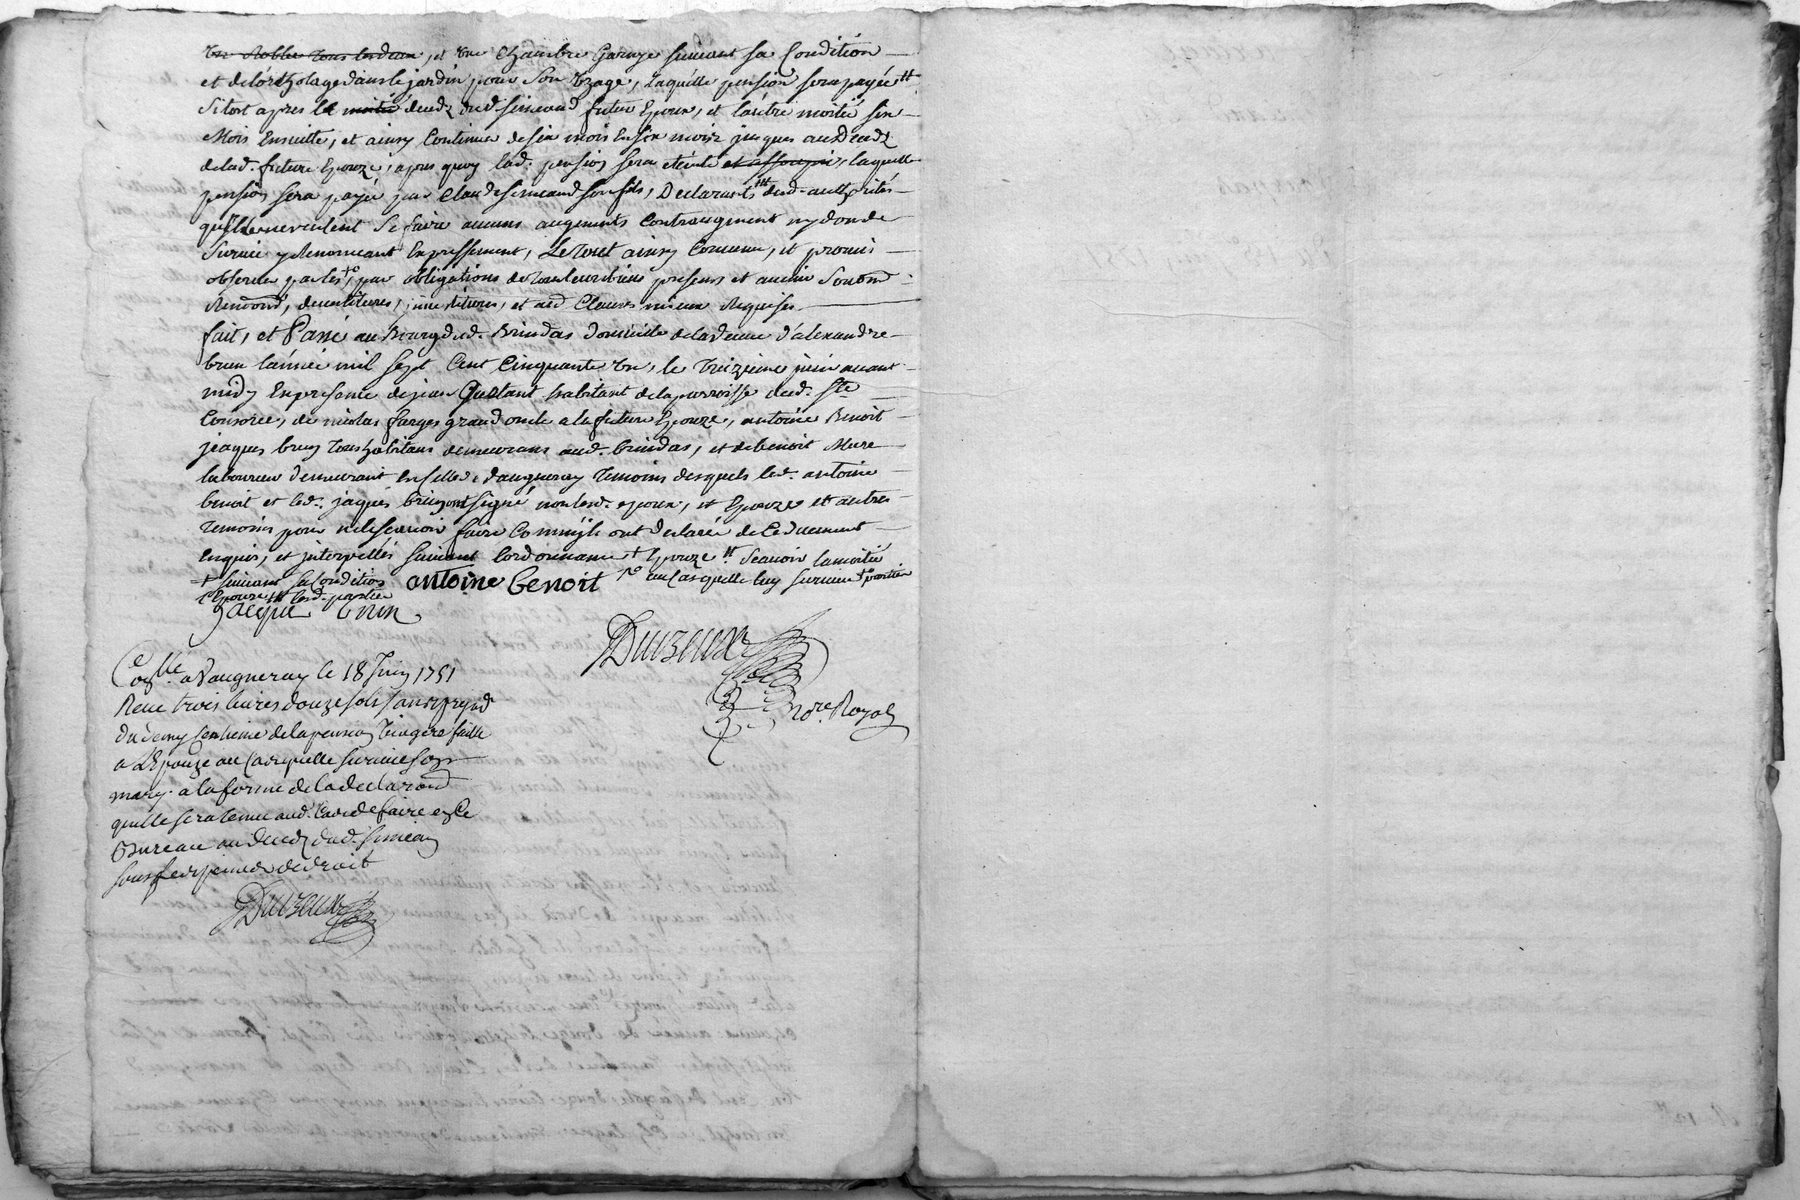 et une Chambre Garnye suivant sa Condition
et de lórtholage dans le jardin pour Son Uzage, laquelle pension sera payée tt
Sitost apres le moitié deceds dud Simeand futur Epoux, et lautre moitié six
Mois Ensuitte, et ainsy Continuer de six mois En six mois jusques au Deceds
de lad. future Epouze, apres quoy lad. pension sera eteinte et assoupie, laquelle
pension sera payée par Claude Simeand son fils, Declarants ttt dud. authorités
qu'ils ne veulent Se faire aucuns augments Contraugment ny don de
Survie y Renonceant Expressement, Le tout ainsy Convenu, et promis
observer parties, par obligations de tous leurs biens presens et avenir Soumon
Renonon, devestitures, investitures, et aud Clauses mieux Requises
fait, et Passé au Bourg dud. Brindas domicille de la veuve d'alexandre
brun lannée mil Sept Cent Cinquante un, le treizieme juin avant
midy En presence de jean Gultant habitant de la parroisse dud. Ste
Consorce, de nicolas farges grand oncle a la future Epouze, antoine Benoit
jaques brun tous habitans demeurans aud. brindas, et de benoit Mure
laboureur demeurant En celle de Vaugneray Temoins desquels led. antoine
benoit et led. jaques brun ont signé non lesd. epoux, et Epouze et autres
temoins pour ne le scavoir faire Comm'ils ont declaré de Ce duement
Enquis, et interpellés suivant lordonnance + Epouze tt Scavoir la moitié
+ suivant sa Condition antoine benoit ro au Cas quelle luy survive +o parties
Epouze ttt lesd. parties
Jacque brun
Duizeux
nore. Royal
Conlle a Vaugneray le 18 Juin 1751
Receu trois livres douze sols sans prejud
du demy Centieme de la pension Viagere faitte
a L'Epouze au Cas quelle survive son
mary. a la forme de la declaraon
quelle sera tenue aud. Cas de faire en Ce
Bureau au deceds dud. Simean
sous les peines de droit
Duizeux